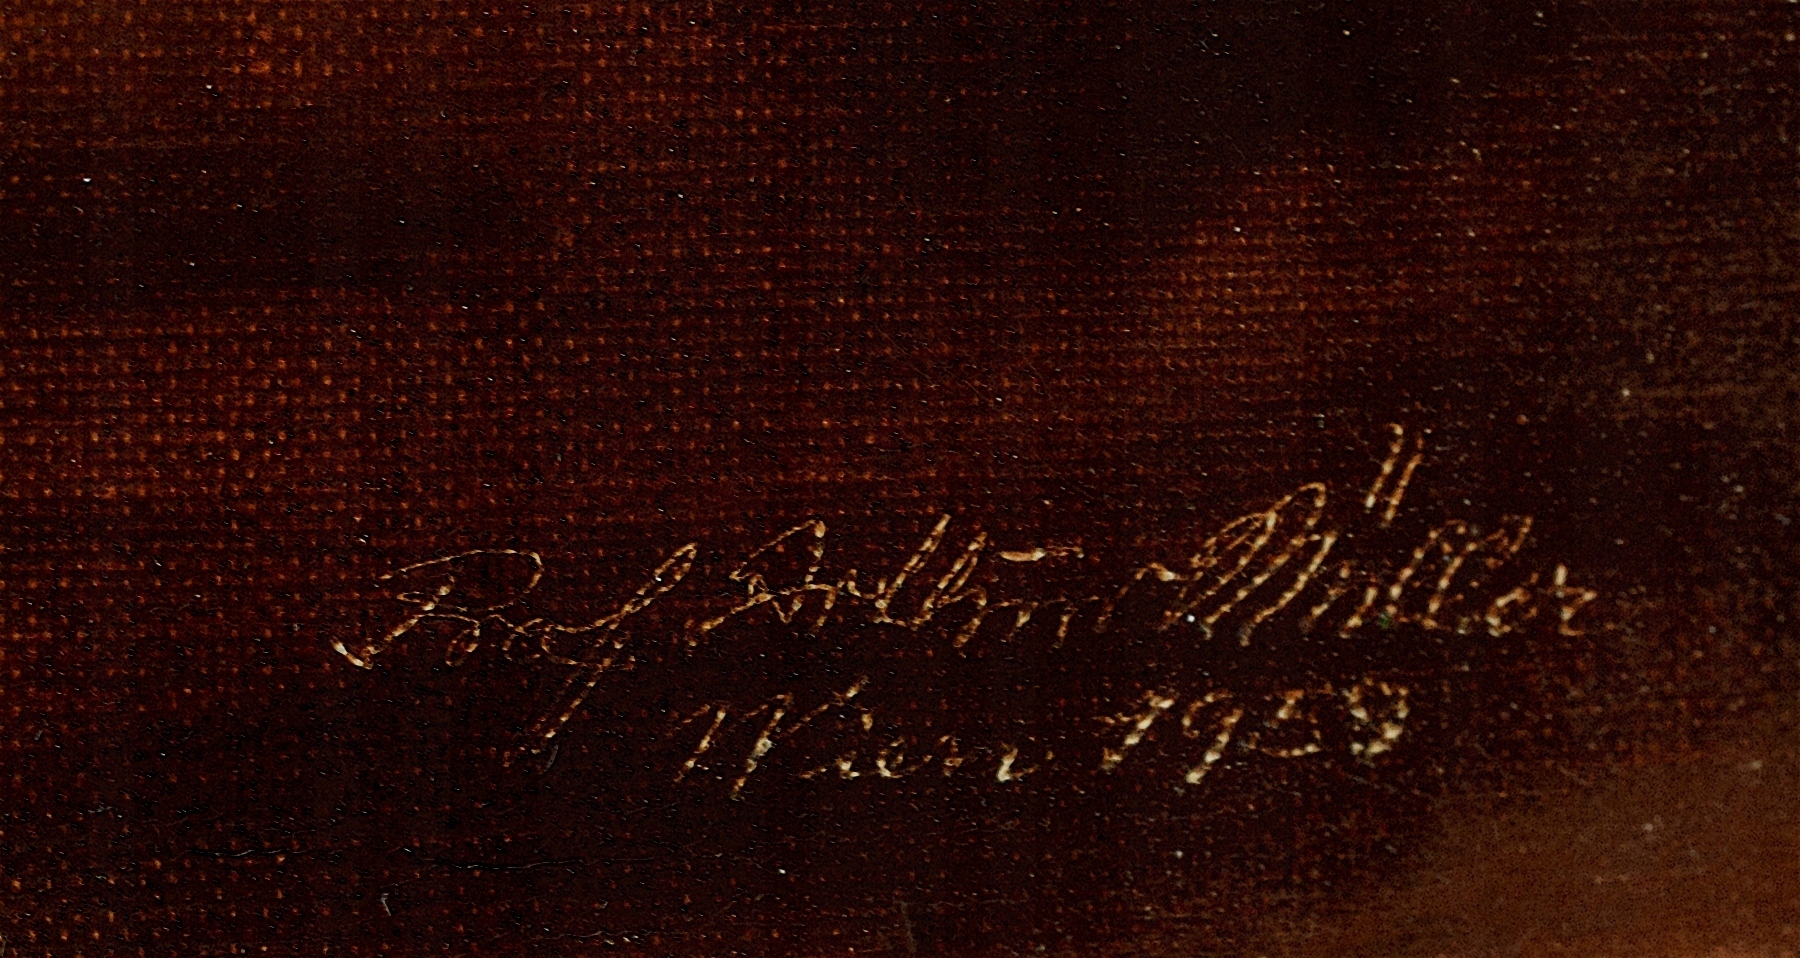 Prof. Arthur Müller
Wien